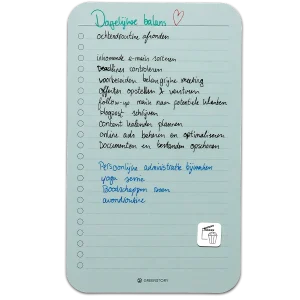 Dagelijkse balans
ochtendroutine afronden
inkomende e-mails sorteren
Deadlines controleren
voorbereiden belangrijke meeting
offertes opstellen & versturen
follow-up mails naar potentiële klanten
blogpost schrijven
content kalender plannen
online ads beheren en optimaliseren
Documenten en bestanden opschonen
Persoonlijke administratie bijwerken
yoga sessie
Boodschappen doen
avondroutine
GREENSTORY